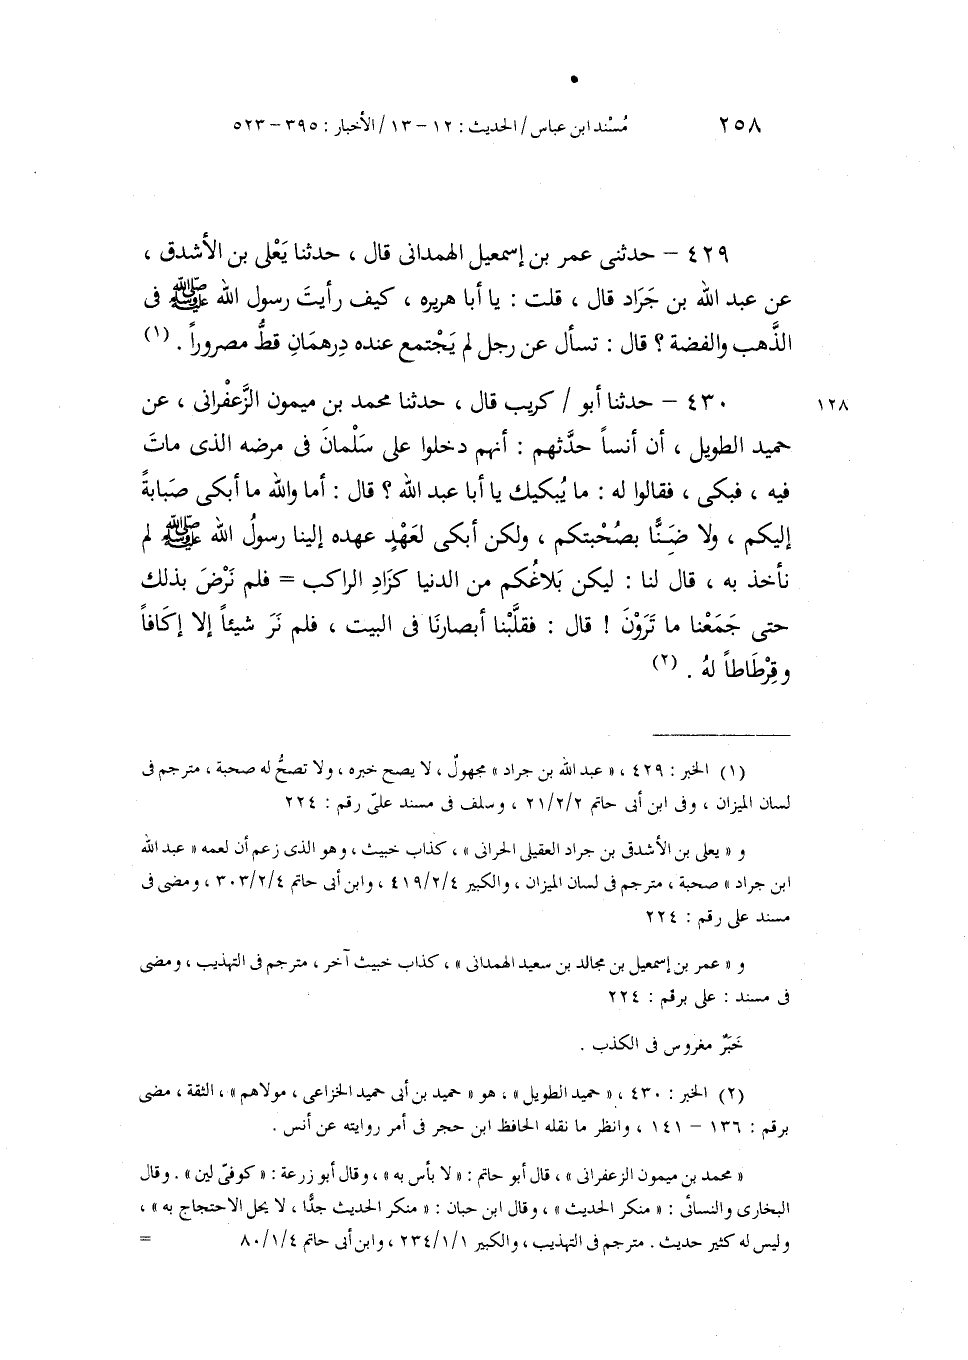 ٢٥٨ مُسْند ابن عباس / الحديث : ١٢ – ١٣ / الأخبار : ٣٩٥ – ٥٢٣
٤٢٩ – حدثنى عمر بن إسمعيل الهمدانى قال ، حدثنا يَعْلى بن الأشدق ،
عن عبد الله بن جَرَاد قال ، قلت : يا أبا هريره ، كيف رأيتَ رسول الله ﷺ فى
الذَّهب والفضة ؟ قال : تسأل عن رجل لم يَجْتمع عنده دِرهمَانِ قطُّ مصروراً . (١)
١٢٨ ٤٣٠ – حدثنا أبو / كريب قال ، حدثنا محمد بن ميمون الزَّعفْرانى ، عن
حميد الطويل ، أن أنساً حدَّثهم : أنهم دخلوا على سَلْمانَ فى مرضه الذى ماتَ
فيه ، فبكى ، فقالوا له : ما يُبكيك يا أبا عبد الله ؟ قال : أما والله ما أبكى صَبابةً
إليكم ، ولا ضَنًّا بصُحْبتكم ، ولكن أبكى لعَهْدٍ عهده إلينا رسولُ الله ﷺ لم
نأخذ به ، قال لنا : ليكن بَلاغُكم من الدنيا كزَادِ الراكب = فلم نَرْضَ بذلك
حتى جَمَعْنا ما تَرَوْنَ ! قال : فقلَّبْنا أبصارنَا فى البيت ، فلم نَرَ شيئاً إلا إكَافاً
وقِرْطَاطاً لهُ . (٢)
(١) الخبر : ٤٢٩ ، « عبد الله بن جراد » مجهولٌ ، لا يصح خبره ، ولا تصحُّ له صحبة ، مترجم فى
لسان الميزان ، وفى ابن أبى حاتم ٢١/٢/٢ ، وسلف فى مسند علىّ رقم : ٢٢٤
و « يعلى بن الأشدق بن جراد العقيلى الحرانى » ، كذاب خبيث ، وهو الذى زعم أن لعمه « عبد الله
ابن جراد » صحبة ، مترجم فى لسان الميزان ، والكبير ٤١٩/٢/٤ ، وابن أبى حاتم ٣٠٣/٢/٤ ، ومضى فى
مسند على رقم : ٢٢٤
و « عمر بن إسمعيل بن مجالد بن سعيد الهمدانى » ، كذاب خبيث آخر ، مترجم فى التهذيب ، ومضى
فى مسند : على برقم : ٢٢٤
خَبَرٌ مغروس فى الكذب .
(٢) الخبر : ٤٣٠ ، « حميد الطويل » ، هو « حميد بن أبى حميد الخزاعى ، مولاهم » ، الثقة ، مضى
برقم : ١٣٦ – ١٤١ ، وانظر ما نقله الحافظ ابن حجر فى أمر روايته عن أنس .
« محمد بن ميمون الزعفرانى » ، قال أبو حاتم : « لا بأس به » ، وقال أبو زرعة : « كوفىّ لين » . وقال
البخارى والنسائى : « منكر الحديث » ، وقال ابن حبان : « منكر الحديث جدًّا ، لا يحل الاحتجاج به » ،
وليس له كثير حديث . مترجم فى التهذيب ، والكبير ٢٣٤/١/١ ، وابن أبى حاتم ٨٠/١/٤ =